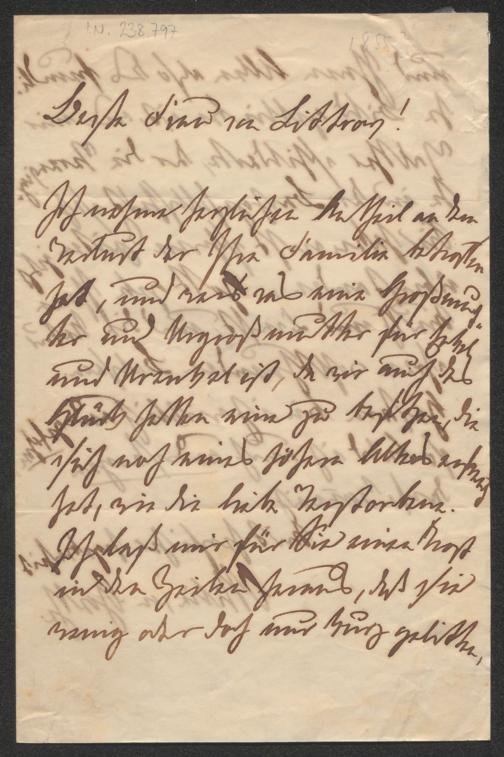 I.N. 238.797
Beste Frau von Littrow!
Ich nehme herzlichen Antheil an dem
Verlust der Ihre Familie betroffen
hat, und weiß was eine Großmut-
ter und Urgroßmutter für Enkel
und Urenkel ist, da wir auch das
Glück hatten eine zu besitzen, die
sich noch eines höhern Alters erfreut
hat, wie die liebe Verstorbene.
Ich las mir für Sie einen Trost
in den Zeilen heraus, daß sie
wenig oder doch nur kurz gelitten,